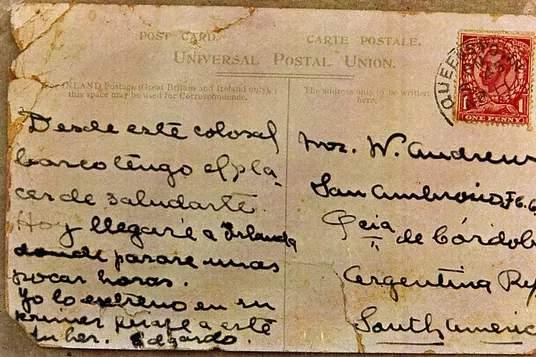 POST CARD.
CARTE POSTALE.
UNIVERSAL POSTAL UNION.
INLAND Postage (Great Britain and Ireland only)
this space may be used for Correspondence.
The address only to be written
here.
QUEENSTOWN
1 1
ONE PENNY
Desde este colosal
barco tengo el pla-
cer de saludarte.
Hoy llegaré a Irlanda
donde parare unas
pocas horas.
Yo lo estreno en su
primer viaje a este
tu her. Edgardo.
Mrs. W. Andrew
San Ambrosio F.C.
Pcia de Córdob
Argentina Rep
South Americ